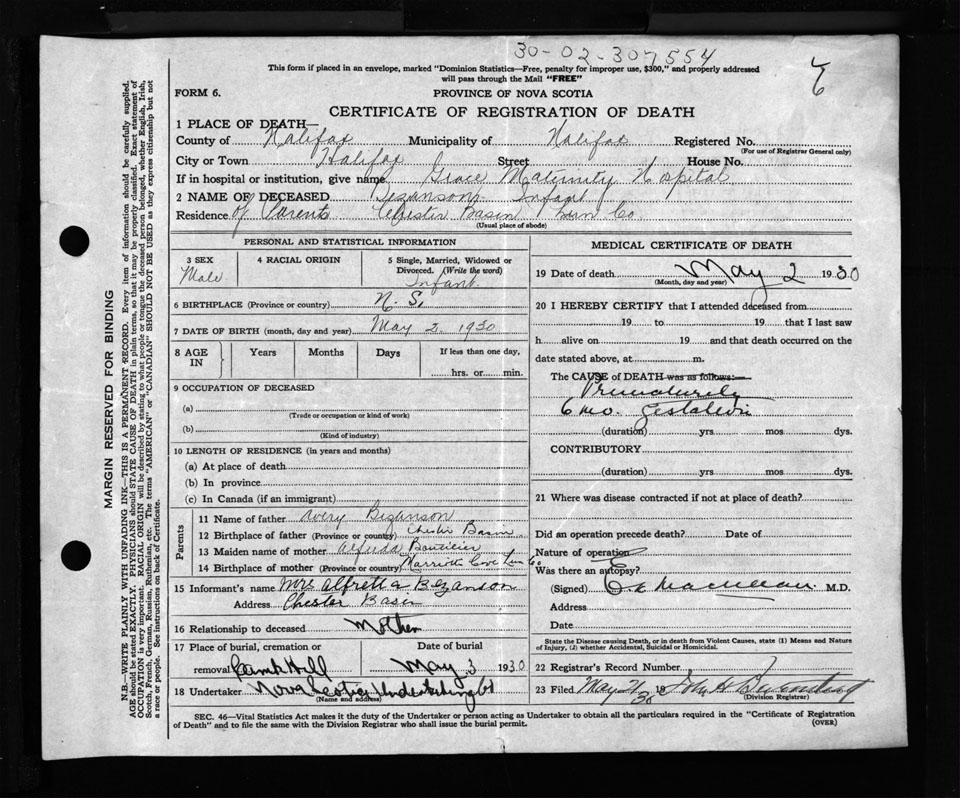 30-02-307554
This form if placed in an envelope, marked "Dominion Statistics—Free, penalty for improper use, $300," and properly addressed
will pass through the Mail "FREE"
FORM 6. PROVINCE OF NOVA SCOTIA
CERTIFICATE OF REGISTRATION OF DEATH
1 PLACE OF DEATH—
County of Halifax Municipality of Halifax Registered No.
(For use of Registrar General only)
City or Town Halifax Street House No.
If in hospital or institution, give name Grace Maternity Hospital
2 NAME OF DECEASED Bezanson Infant
Residence of Parents Chester Basin Lun Co
(Usual place of abode)
PERSONAL AND STATISTICAL INFORMATION
3 SEX Male
4 RACIAL ORIGIN
5 Single, Married, Widowed or
Divorced. (Write the word)
Infant.
6 BIRTHPLACE (Province or country) N. S.
7 DATE OF BIRTH (month, day and year) May 2. 1930
8 AGE IN Years Months Days If less than one day,
hrs. or min.
9 OCCUPATION OF DECEASED
(a)
(Trade or occupation or kind of work)
(b)
(Kind of industry)
10 LENGTH OF RESIDENCE (in years and months)
(a) At place of death
(b) In province
(c) In Canada (if an immigrant)
Parents
11 Name of father Avery Bezanson
12 Birthplace of father (Province or country) Chester Basin
13 Maiden name of mother
14 Birthplace of mother (Province or country) Marriotts Cove Lun Co
15 Informant's name Mrs Alfretta Bezanson
Address Chester Basin
16 Relationship to deceased Mother
17 Place of burial, cremation or Date of burial
removal Camp Hill May 3 1930
18 Undertaker Nova Scotia Undertaking Co
(Name and address)
MEDICAL CERTIFICATE OF DEATH
19 Date of death May 2 1930
(Month, day and year)
20 I HEREBY CERTIFY that I attended deceased from
19 to 19 that I last saw
h alive on 19 and that death occurred on the
date stated above, at m.
The CAUSE of DEATH was as follows:
Prematurity
6 mo. gestation
(duration) yrs mos dys.
CONTRIBUTORY
(duration) yrs mos dys.
21 Where was disease contracted if not at place of death?
Did an operation precede death? Date of
Nature of operation
Was there an autopsy?
(Signed) M.D.
Address
Date
State the Disease causing Death, or in death from Violent Causes, state (1) Means and Nature
of Injury, (2) whether Accidental, Suicidal or Homicidal.
22 Registrar's Record Number
23 Filed May 21/30 19 John H
(Division Registrar)
SEC. 46—Vital Statistics Act makes it the duty of the Undertaker or person acting as Undertaker to obtain all the particulars required in the "Certificate of Registration
of Death" and to file the same with the Division Registrar who shall issue the burial permit.
(OVER)
MARGIN RESERVED FOR BINDING
N.B.—WRITE PLAINLY WITH UNFADING INK—THIS IS A PERMANENT RECORD. Every item of information should be carefully supplied.
AGE should be stated EXACTLY. PHYSICIANS should STATE CAUSE OF DEATH in plain terms, so that it may be properly classified. Exact statement of
OCCUPATION is very important. RACIAL ORIGIN will be described by stating to what people or tongue the deceased person belonged, whether English, Irish,
Scotch, French, German, Russian, Ruthenian, etc. The terms "AMERICAN" or "CANADIAN" SHOULD NOT BE USED as they express citizenship but not
a race or people. See instructions on back of Certificate.